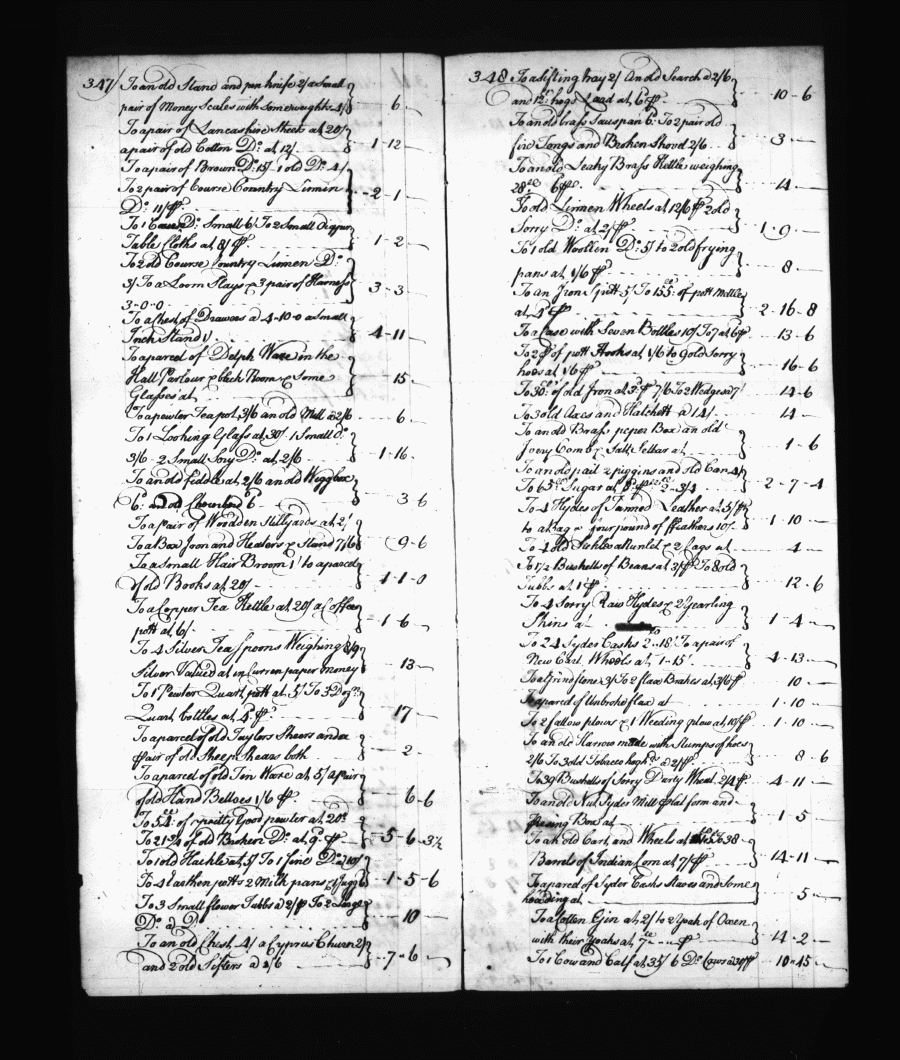 347/ To an old Stand and pen knife 2/ a Small
pair of Money Scales with Some weights 4/ 6 -
To a pair of Lancashire Sheets at 20/
a pair of old Cotton Do. at 12/ 1-12
To a pair of Brown Do. 15/ 1 old Do. 4/
To 2 pair of Course Country Linnin
Do. 11/ pr. 2-1
To 1 Do. Small 6/ To 2 Small
Table Cloths at 8/ pr. 1-2-
To 2 old Course Country Linnen Do.
3/ To a Loom Slays & 3 pair of Harness
3-0-0 3-3
To a Chest of Drawers a 4-10-0 a Small
Inch Stand 1/ 4-11
To a parcel of Delph Ware in the
Hall Parlour & back Room & Some
Glasses at 15
To a pewter Tea pot 3/6 an old Mill a 2/6 6
To 1 Looking Glass at 30/ 1 Small do.
3/6 - 2 Small Sory Do. at 2/6 1-16-
To an old fiddle at 2/6 an old Wigg box
6d. and old 6d. 3 6
To a pair of Wooden Stillyards at 2/
To a Box Iron and Heaters & Stand 7/6 9-6
To a Small Hair Broom 1/ to a parcel
of old Books at 20/ 1-1-0
To a Copper Tea Kettle at 20/ a Coffee
pott at 6/ 1-6
To 4 Silver Tea Spoons Weighing
Silver Valued at in Curren paper money 13
To 1 Pewter Quart pott at 5/ To 3 Dozn.
Quart bottles at 4 pr. 17
To a parcel of old Taylors Sheers and a
pair of old Sheep Shears both 2
To a parcel of old Tin Ware at 5/ a pair
of old Hand Belloes 1/6 pr. 6-6
To 54 lb. of pretty Good pewter at 20d.
To 21 3/4 of old Broken Do. at 9d. pr. 5-6-3½
To 1 old Hackle at 5/ To 1 fine Do. 10/
To 4 Earthen potts 2 Milk pans & Juggs 1-5-6
To 3 Small flower Tubbs a 2/ pr To 2 Large
Do. a Do. 10
To an old Chest 4/ a Cyprus Churn 2/
and 2 old Sifters a 2/6 7-6
348 To a Sifting tray 2/ An old Search a 2/6
and 12 lb. hogs Lard at 6 pr. 10-6
To an old brass Sauspan 6d. To 2 pair old
fire Tongs and Broken Shovel 2/6 3
To an old Leaky Brass Kettle weighing
28 lb. 6d pr. 14
To old Linnen Wheels at 12/6 pr 2 old
Sorry Do. at 2/ pr. 1 9
To 1 old Woollen Do. 5/ to 2 old frying
pans at 1/6 pr. 8
To an Iron Spitt 5/ To 155 lb. of pott Mettle
at 4d pr. 2-16-8
To a Case with Seven Bottles 10/ To 7 at 6 pr. 13-6
To 2 pr of pott Hooks at 1/6 to 9 old Sorry
hoes at 1/6 pr. 16-6
To 30 lb. of old Iron at 3d pr 7/6 To 2 Wedges a 7/ 14-6
To 3 old Axes and Hatchett a 14/ 14
To an old Brass peper Box an old
Ivory Comb & Salt Sellar at 1-6
To an old pail 2 piggins and old Can 4/
To 65 lb. Sugar at 8d. 2-3/4 2-7-4
To 4 Hydes of Tanned Leather at 5/ pr
to a bag & four pound of ffeathers 10/- 1-10
To 4 old a Runlet & 2 Cags at 4
To 1½ Bushells of Beans at 3/ pr To 8 old
Tubbs at 1 pr. 12-6
To 4 Sorry Raw Hydes & 2 Yearling
Skins at 1-4
To 24 Syder Casks 2..18/ To a pair of
New Cart Wheels at 1-15/ 4-13
To a Grindstone 3/ To 2 flax Brakes at 3/6 pr. 10
To a parcel of Unbroke flax at 1-10
To 2 fallow plows & 1 Weeding plow at 10/ pr 1-10
To an old Harrow made with Stumps of hoes
2/6 To 3 old Tobacco hoghds. a 2/ pr 8-6
To 39 Bushells of Sorry Durty Wheat 2/4 pr. 4-11
To an old Nut Syder Mill & plat form and
pressing Box at 1-5
To an old Cart and Wheels at To 38
Barrels of Indian Corn at 7/ pr 14-11
To a parcel of Syder Casks Staves and Some
heading at 5
To a Cotten Gin at 2/ to 2 Yoak of Oxen
with their Yoaks at 7 pr. 14-2
To 1 Cow and Calf at 35/ 6 Do. Cows a 30/ pr 10-15